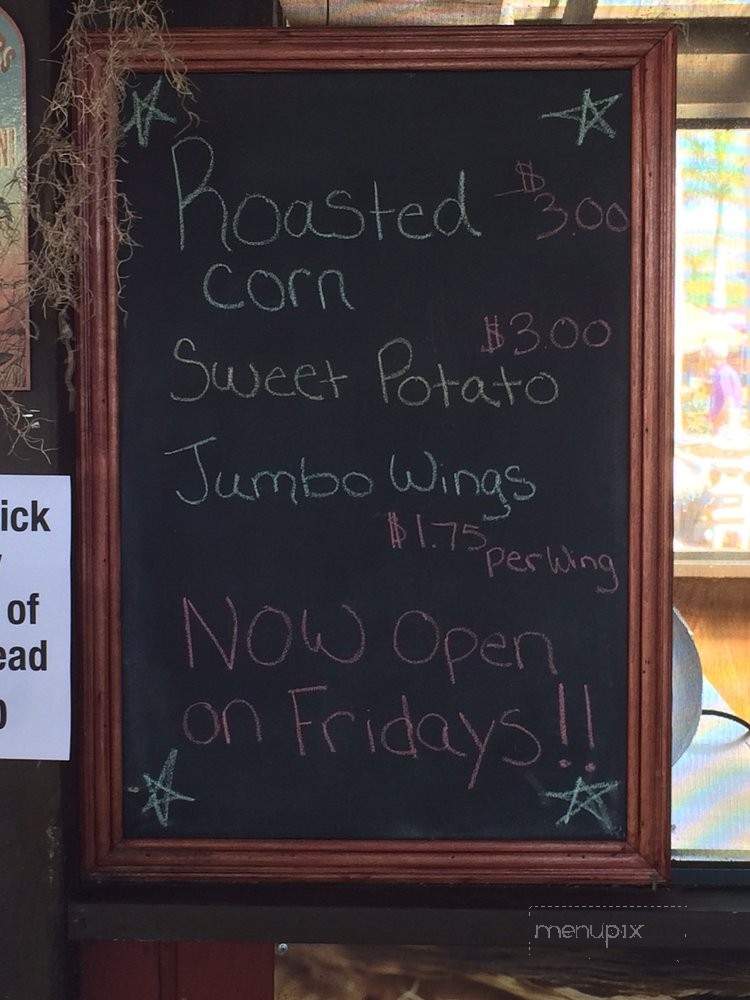 Roasted $3.00
corn
$3.00
Sweet Potato
Jumbo Wings
$1.75 per Wing
NOW Open
on Fridays!!
ick
of
ead
menupix